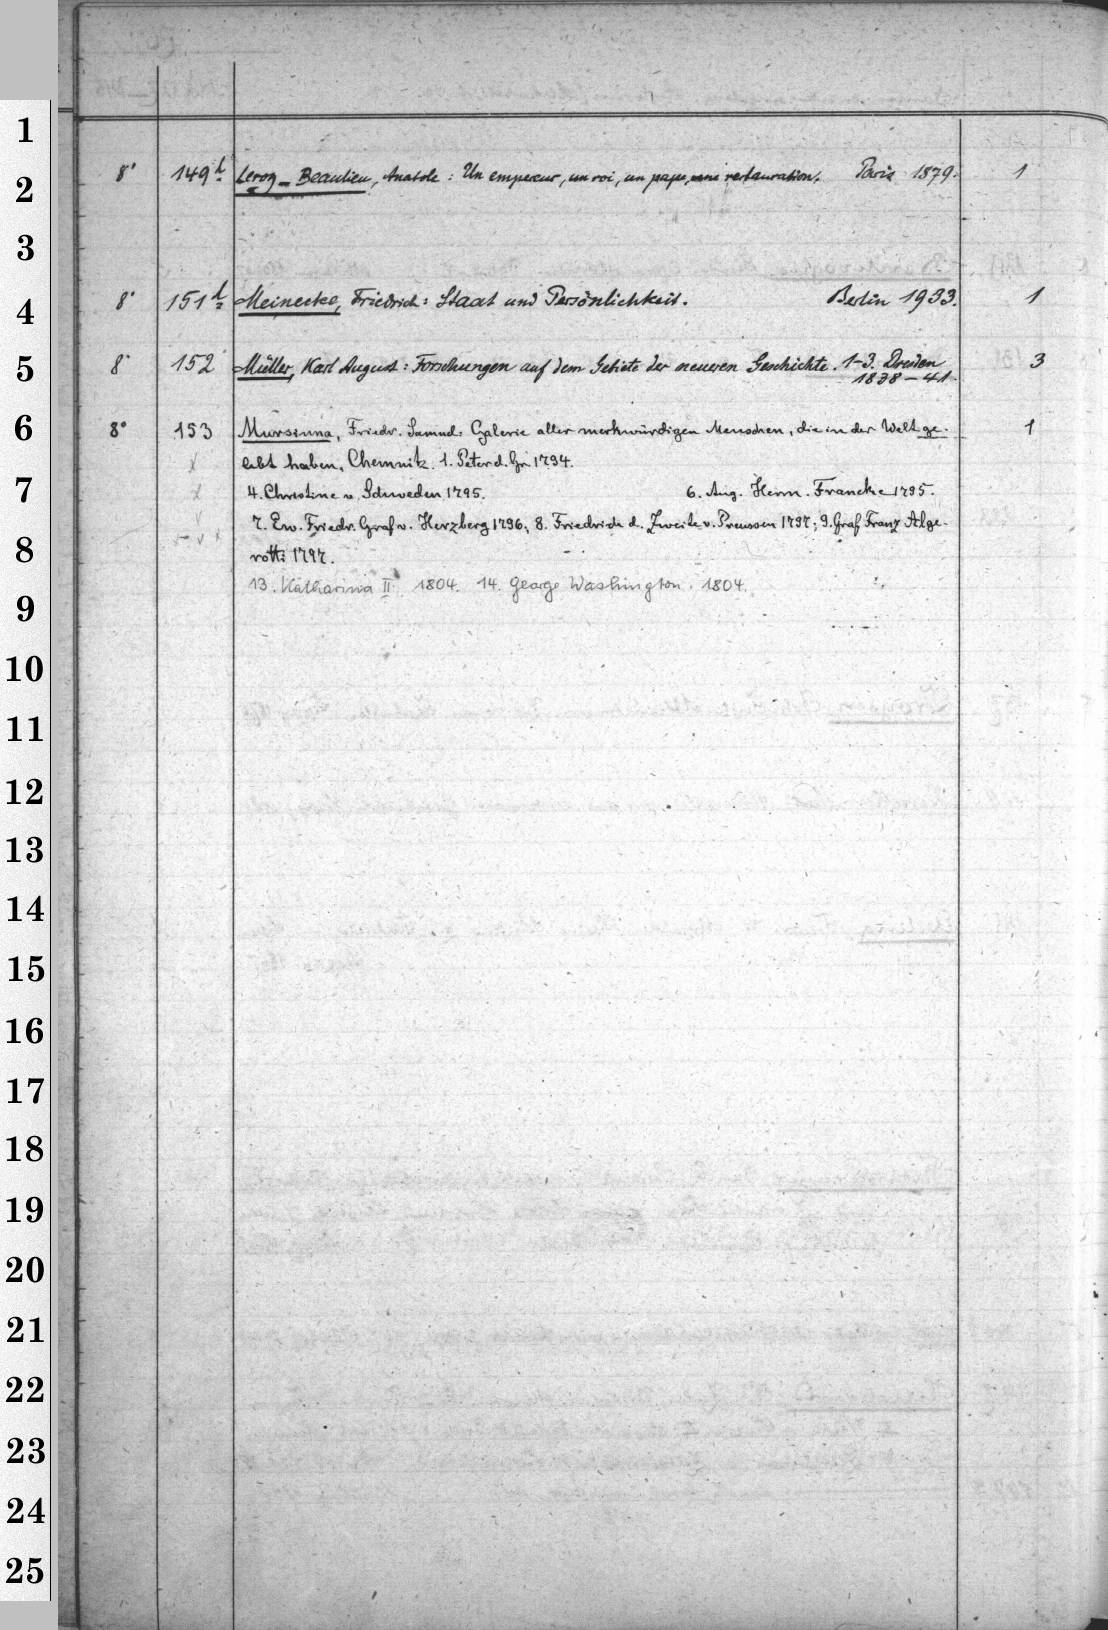 1
2
8° 149d Leroy-Beaulieu, Anatole: Un empereur, un roi, un pape, une restauration. Paris 1879. 1
3
4
8° 151d Meinecke, Friedrich: Staat und Persönlichkeit. Berlin 1933. 1
5
8° 152 Müller, Karl August: Forschungen auf dem Gebiete der neueren Geschichte. 1-3. Dresden 3
1838-41.
6
8° 153 Mursinna, Friedr. Samuel: Galerie aller merkwürdigen Menschen, die in der Welt ge- 1
lebt haben, Chemnitz. 1. Peter d. Gr. 1794.
7
4. Christine v. Schweden 1795. 6. Aug. Herm. Francke 1795.
7. Ew. Friedr. Graf v. Herzberg 1796; 8. Friedrich d. Zweite v. Preussen 1797; 9. Graf Franz Alga-
8
rotti 1797.
13. Katharina II 1804. 14. George Washington. 1804.
9
10
11
12
13
14
15
16
17
18
19
20
21
22
23
24
25